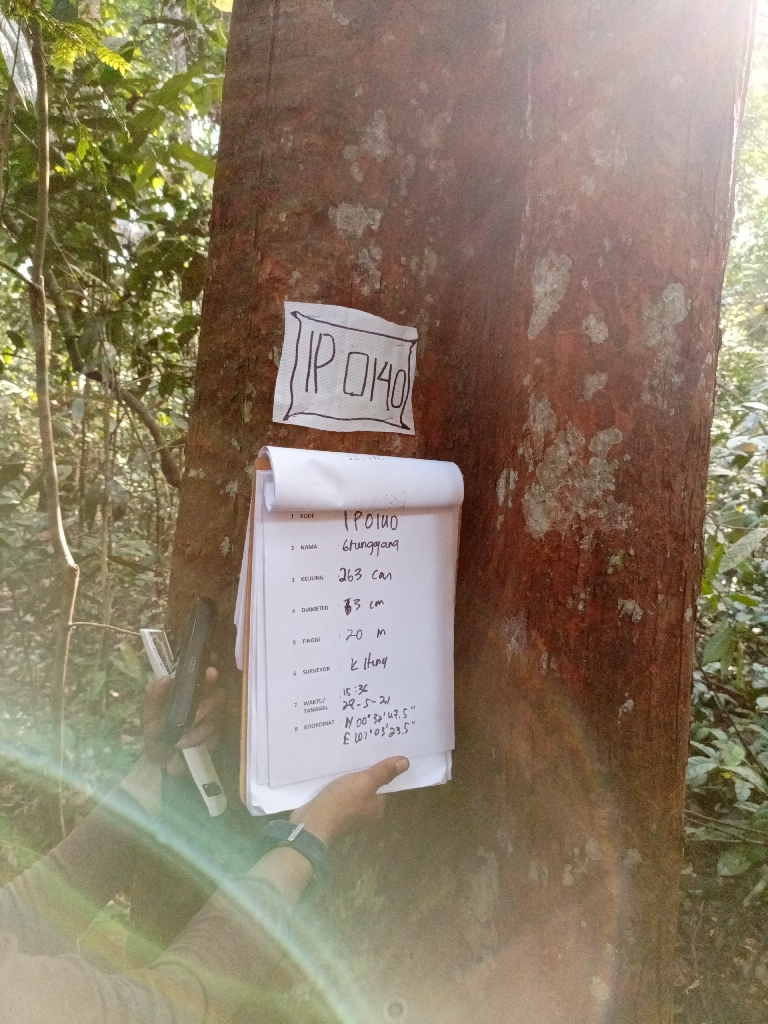 IP 0140
1 KODE IP0140
2 NAMA : Grunggang
3 KELILING : 263 cm
4 DIAMETER : cm
5 TINGGI : 20 m
6 SURVEYOR :
7 WAKTU/ : 15:36
TANGGAL 29-5-21
8 KOORDINAT : N 00°32'47.5"
E 107°03'23.5"